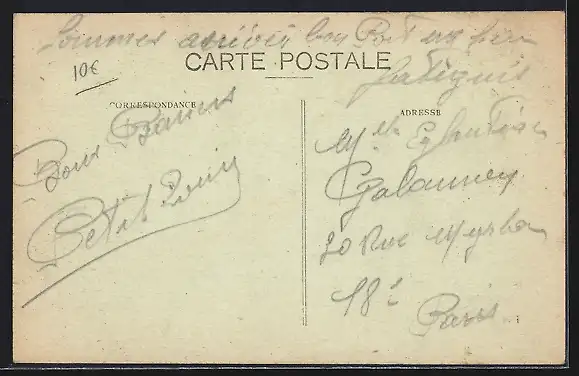 Sommes arrivés bon Port un peu
fatigués
10€
CARTE POSTALE
CORRESPONDANCE
ADRESSE
Bons Baisers
Petit
Mlle
20 Rue Myrha
18e
Paris